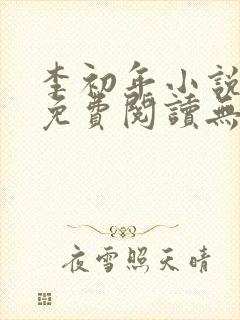 李初年小說
免費閱讀無
夜雪照天晴